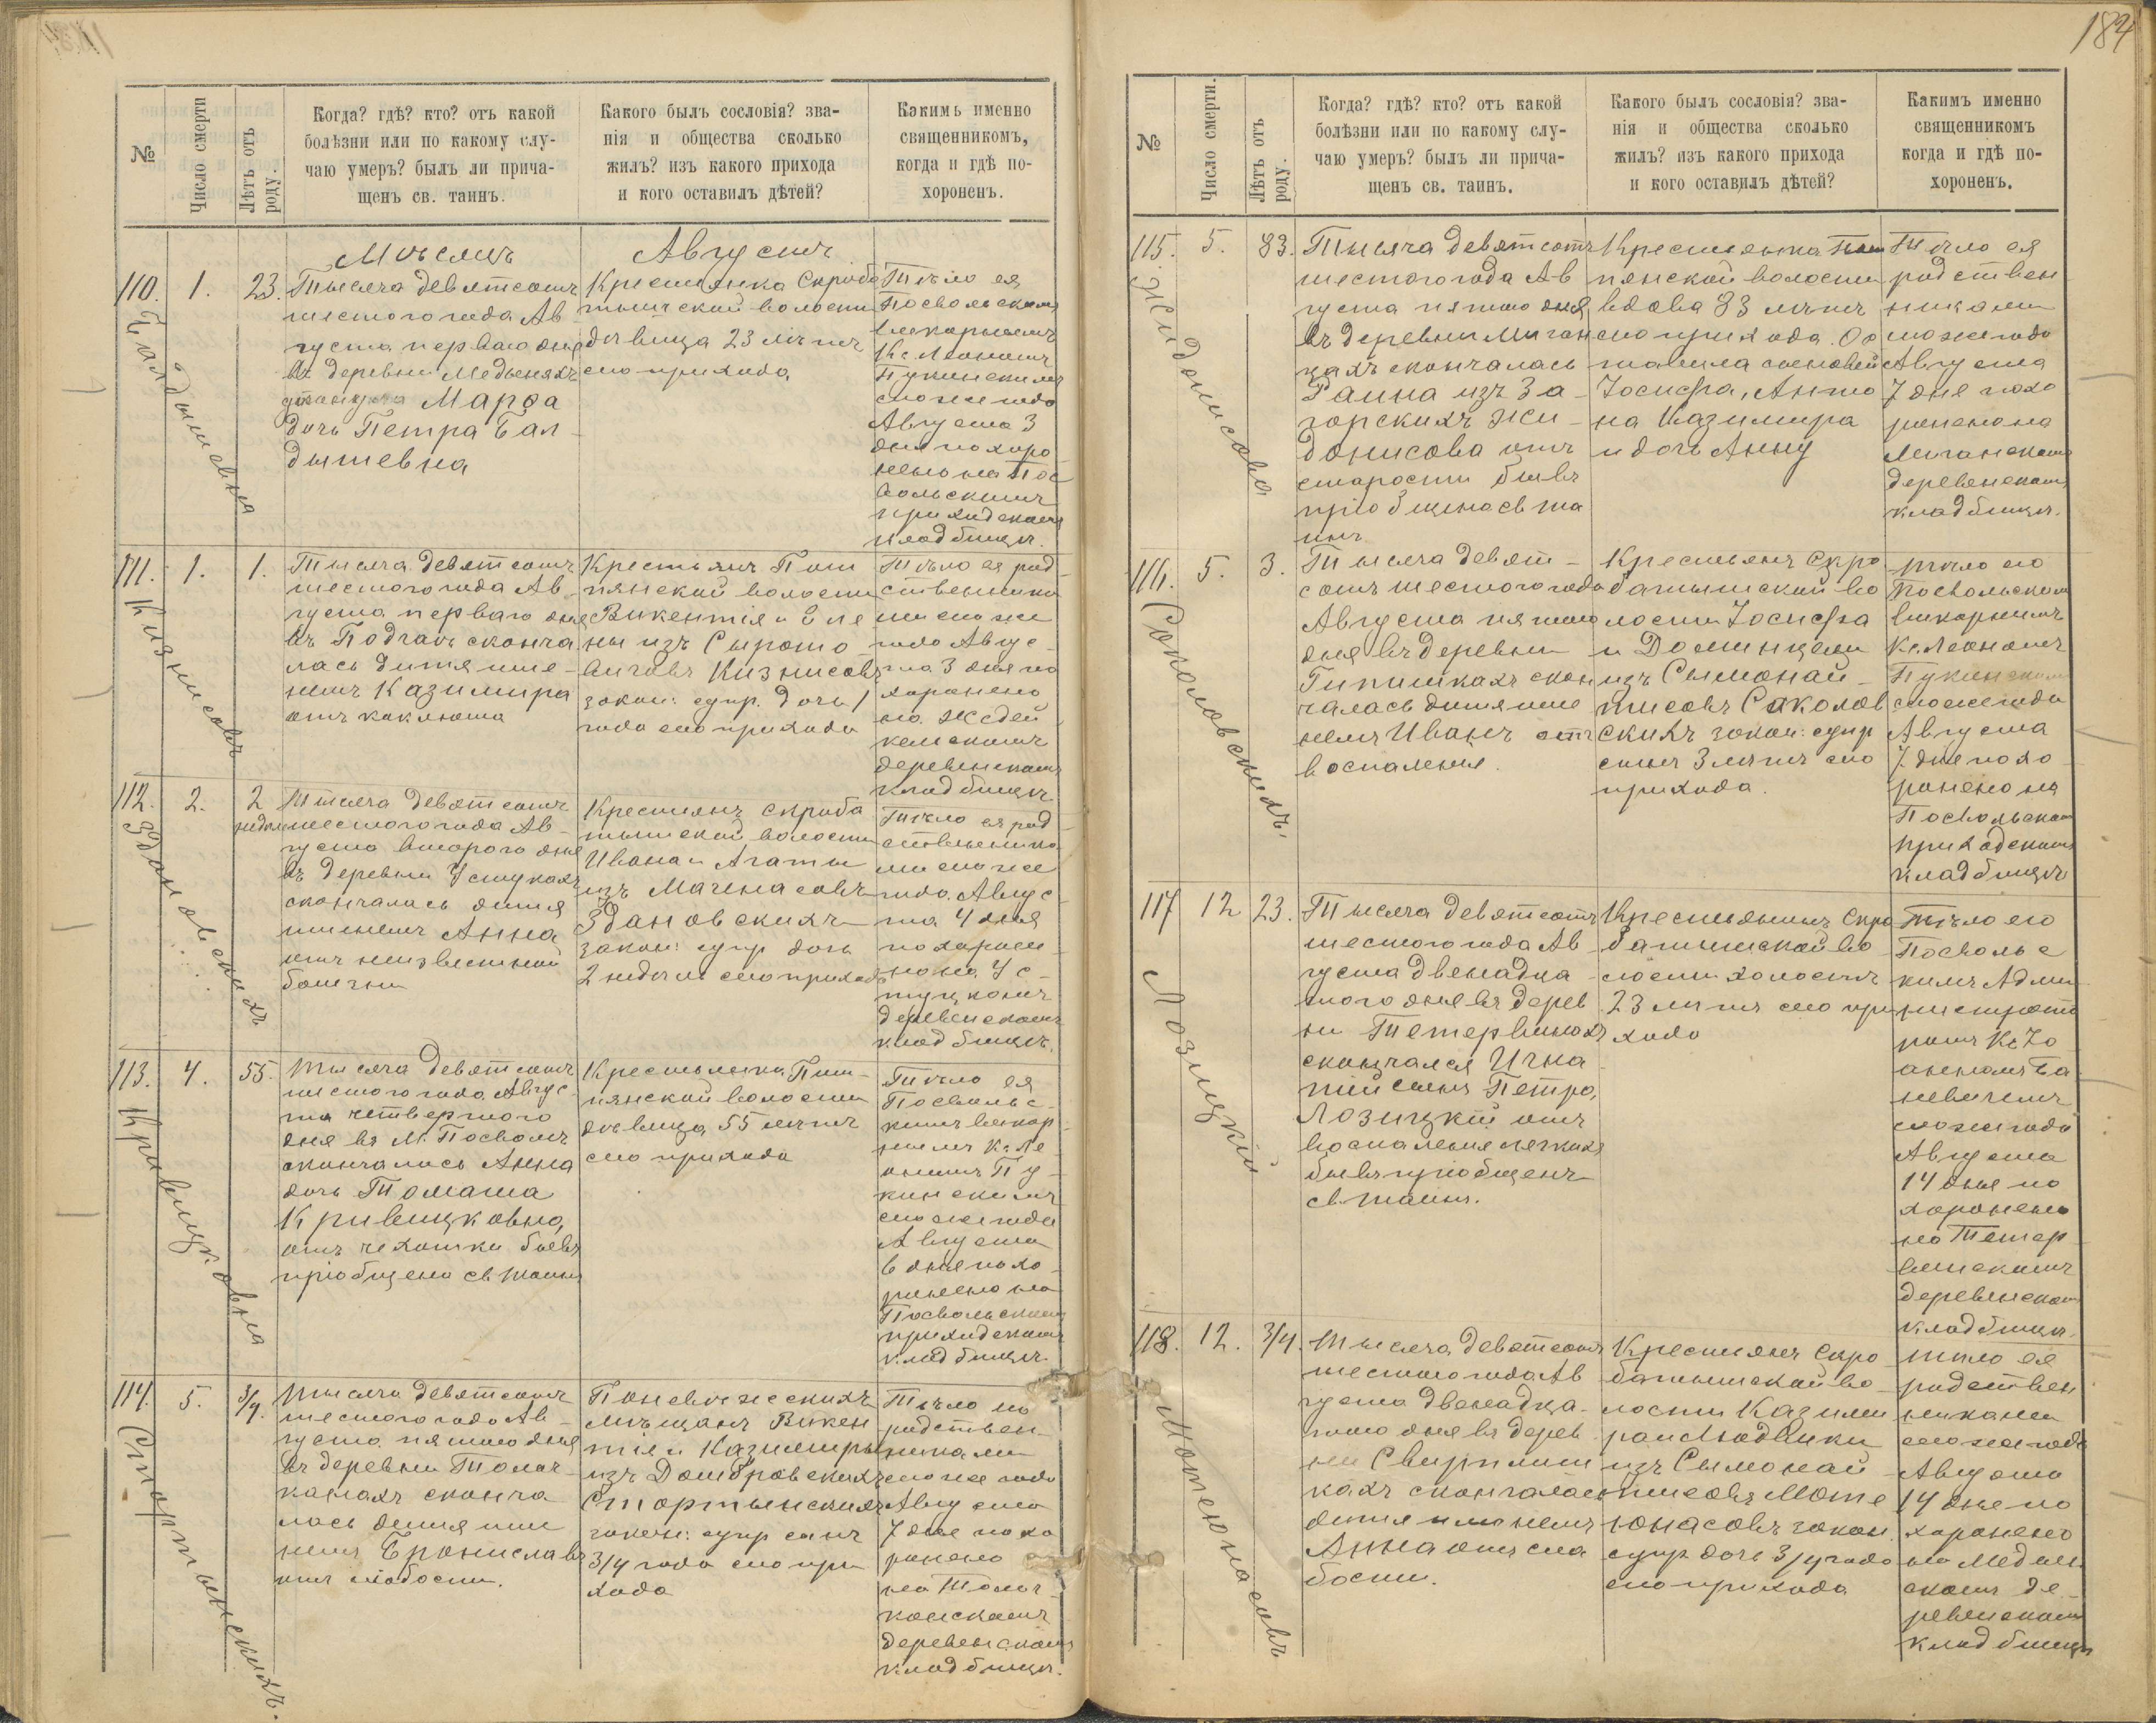 184
№
Число смерти
Лѣтъ отъ роду.
Когда? гдѣ? кто? отъ какой
болѣзни или по какому слу-
чаю умеръ? былъ ли прича-
щенъ св. таинъ.
Какого былъ сословія? зва-
нія и общества сколько
жилъ? изъ какого прихода
и кого оставилъ дѣтей?
Какимъ именно
священникомъ,
когда и гдѣ по-
хороненъ.
Мѣсяцъ Августъ
110. 1. 23.
Балдышевна
Тысяча девятсотъ
шестого года Ав
густа перваго дня
въ деревни Медыняхъ
Марѳа
дочь Петра Бал
дышевна
Крестянка Скроба
тышской волости
дѣвица 23 лѣтъ
сего прихода
Тѣло ея
Посвольскимъ
викарнымъ
Кс. Леономъ
Пукинскимъ
сего же года
Августа 3
дня похоро
нено на Пос
вольскимъ
приходскомъ
кладбищѣ.
111. 1. 1.
Тысяча девятсотъ
шестого года Ав
густа перваго дня
въ Подгаѣ сконча
лась дитя име-
немъ Казимира
отъ коклюша
Крестьянъ Пом
пянской волости
Викентія и Еле
ны изъ Сырото
вичовъ Кизнисовъ
закон: супр. дочь 1
года сего прихода
Тѣло ея род
ственника
ми сего же
года Авгус
та 3 дня по
хоронено
на Ждей
кемскомъ
деревенскомъ
кладбищѣ
112. 2. 2 недѣли
Здановскихъ
Тысяча девятсотъ
шестого года Ав-
густа второго дня
въ деревни Устукахъ
скончалась дитя
именемъ Анна
отъ неизвестной
болезни
Крестянъ Скроба
тышской волости
Ивана и Агаты
изъ Мачеnасовъ
Здановскихъ
закон: супр дочь
2 недѣли сего прихода
Тѣло ея род
ственника
ми сего же
года Авгус
та 4 дня
похороне
но на Ус-
туцкомъ
деревенскомъ
кладбищѣ.
113. 4. 55.
Кривицковна
Тысяча девятсотъ
шестого года Авгус
та четвертого
дня въ М. Посволѣ
скончалась Анна
дочь Томаша
Кривицковна,
отъ чехотки бывъ
пріобщено св таинъ
Крестьянка Пом-
пянской волости
дѣвица 55 лѣтъ
сего прихода
Тѣло ея
Посвольс-
кимъ викар
нымъ Кс. Ле
ономъ Пу
кинскимъ
сего же года
Августа
6 дня похо
ронено на
Посвольскомъ
приходскомъ
кладбищѣ.
114. 5. 3/4.
Стортынскихъ.
Тысяча девятсотъ
шестого года Ав-
густа пятого дня
въ деревни Толоч-
канахъ сконча
лась дитя име
немъ Брониславъ
отъ слабости.
Поневѣжескихъ
мѣщанъ Викен
тія и Казимиры
изъ Домбровскихъ
Стортынскихъ
закон: супр сынъ
3/4 года сего при
хода
Тѣло его
родствен-
никами
сего же года
Августа
7 дня похо
ронено
на Толоч
конскомъ
деревенскомъ
кладбищѣ.
№
Число смерти.
Лѣтъ отъ роду.
Когда? гдѣ? кто? отъ какой
болѣзни или по какому слу-
чаю умеръ? былъ ли прича-
щенъ св. таинъ.
Какого былъ сословія? зва-
нія и общества сколько
жилъ? изъ какого прихода
и кого оставилъ дѣтей?
Какимъ именно
священникомъ
когда и гдѣ по-
хороненъ.
115. 5. 83.
Жидонисова
Тысяча девятсотъ
шестого года Ав
густа пятого дня
въ деревни Миган
цахъ скончалась
Раина изъ За-
горскихъ Жи-
донисова отъ
старости бывъ
пріобщена св та
инъ
Крестьянка Пом
пянской волости
вдова 83 лѣтъ
сего прихода. Ос
тавила сыновей
Іосифа, Анто
на Казимира
и дочь Анну
Тѣло ея
родствен
никами
сего же года
Августа
7 дня похо
ронено на
Миганскомъ
деревенскомъ
кладбищѣ.
116. 5. 3.
Соколовскихъ.
Тысяча девят-
сотъ шестого года
Августа пятого
дня въ деревни
Гипишкахъ скон
чалась дитя име
немъ Иванъ отъ
воспаленія.
Крестьянъ Скро
батышской во
лости Іосифа
и Доминцели
изъ Сымонай-
тисовъ Соколов
скихъ закон: супр
сынъ 3 лѣтъ сего
прихода.
Тѣло его
Посвольскимъ
викарнымъ
Кс. Леономъ
Пукинскимъ
сего же года
Августа
7 дня похо
ронено на
Посвольскомъ
приходскомъ
кладбищѣ
117 12 23.
Лозицкій
Тысяча девятсотъ
шестого года Ав
густа двенадца
того дня въ дерев
ни Тетервинахъ
скончался Игна
тій сынъ Петра,
Лозицкій отъ
воспаленія легкихъ
бывъ пріобщенъ
св. таинъ.
Крестьянинъ Скро
батышской во
лости холостъ
23 лѣтъ сего при
хода
Тѣло его
Посвольс
кимъ Адми
нистрато
ромъ Кс Іо
анномъ Ба
невичемъ
сего же года
Августа
14 дня по
хоронено
на Тетер
винскомъ
деревенскомъ
кладбищѣ.
118. 12. 3/4.
Мотеюнасовъ
Тысяча девятсотъ
шестого года Ав
густа двенадца-
того дня въ дерев
ни Свирплиш
кахъ скончалась
дитя именемъ
Анна отъ сла
бости.
Крестьянъ Скро
батышской во-
лости Казими
ра и Людвики
изъ Сымонай
тисовъ Моте
юнасовъ закон.
супр дочь 3/4 года
сего прихода
Тѣло ея
родствен
никами
сего же года
Августа
14 дня по
хоронено
на Медын
скомъ де-
ревенскомъ
кладбищѣ